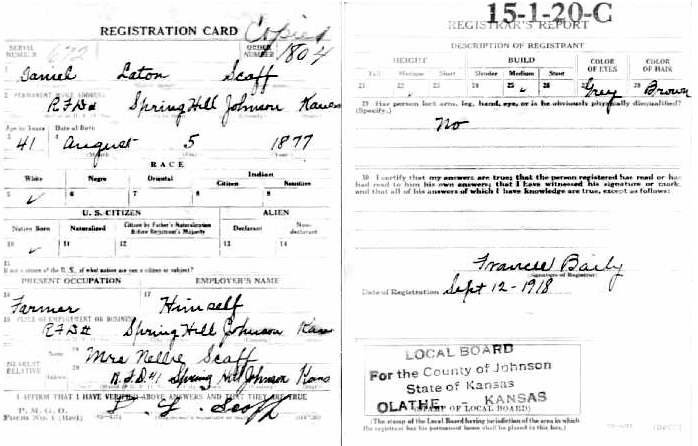 REGISTRATION CARD
Copied
SERIAL NUMBER 672
ORDER NUMBER 1804
1 Daniel Laton Scaff
2 PERMANENT HOME ADDRESS
R.F.D. Spring Hill Johnson Kans
Age in Years
Date of Birth
3 41
4 August 5 1877
RACE
White
Negro
Oriental
Indian
Citizen
Noncitizen
5 ✓
6
7
8
9
U. S. CITIZEN
ALIEN
Native Born
Naturalized
Citizen by Father's Naturalization Before Registrant's Majority
Declarant
Non-declarant
10 ✓
11
12
13
14
15
If not a citizen of the U. S. of what nation are you a citizen or subject?
PRESENT OCCUPATION
EMPLOYER'S NAME
16 Farmer
17 Himself
18 PLACE OF EMPLOYMENT OR BUSINESS
Spring Hill Johnson Kans
NEAREST RELATIVE
19 Mrs Nellie Scaff
20 R.F.D. #1 Spring Hill Johnson Kans
I AFFIRM THAT I HAVE VERIFIED ABOVE ANSWERS AND THAT THEY ARE TRUE
P. M. G. O.
Form No. 1 (Red)
D. L. Scaff
15-1-20-C
REGISTRAR'S REPORT
DESCRIPTION OF REGISTRANT
HEIGHT
BUILD
COLOR OF EYES
COLOR OF HAIR
Tall
Medium
Short
Slender
Medium
Stout
21
22 ✓
23
24
25 ✓
26
27 Grey
28 Brown
29 Has person lost arm, leg, hand, eye, or is he obviously physically disqualified? (Specify.)
No
30 I certify that my answers are true; that the person registered has read or has
had read to him his own answers; that I have witnessed his signature or mark,
and that all of his answers of which I have knowledge are true, except as follows:
Francis Baily
(Signature of Registrar)
Date of Registration Sept 12-1918
LOCAL BOARD
For the County of Johnson
State of Kansas
OLATHE, - KANSAS
(STAMP OF LOCAL BOARD)
(The stamp of the Local Board having jurisdiction of the area in which
the registrant has his permanent home shall be placed in this box.)